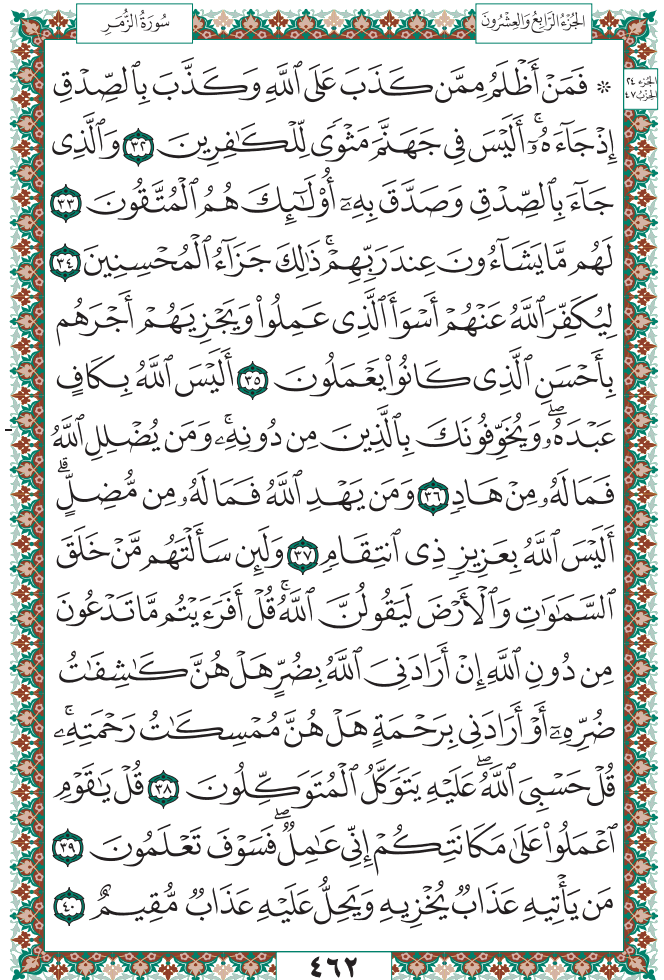 سُورَةُ الزُّمَر
الجُزْءُ الرَّابِعُ وَالعِشْرُونَ
الجُزء ٢٤
الحِزْبُ ٤٧
۞ فَمَنْ أَظْلَمُ مِمَّن كَذَبَ عَلَى ٱللَّهِ وَكَذَّبَ بِٱلصِّدْقِ
إِذْ جَآءَهُۥٓۚ أَلَيْسَ فِى جَهَنَّمَ مَثْوًى لِّلْكَٰفِرِينَ ٣٢ وَٱلَّذِى
جَآءَ بِٱلصِّدْقِ وَصَدَّقَ بِهِۦٓ أُو۟لَٰٓئِكَ هُمُ ٱلْمُتَّقُونَ ٣٣
لَهُم مَّا يَشَآءُونَ عِندَ رَبِّهِمْۚ ذَٰلِكَ جَزَآءُ ٱلْمُحْسِنِينَ ٣٤
لِيُكَفِّرَ ٱللَّهُ عَنْهُمْ أَسْوَأَ ٱلَّذِى عَمِلُوا۟ وَيَجْزِيَهُمْ أَجْرَهُم
بِأَحْسَنِ ٱلَّذِى كَانُوا۟ يَعْمَلُونَ ٣٥ أَلَيْسَ ٱللَّهُ بِكَافٍ
عَبْدَهُۥۖ وَيُخَوِّفُونَكَ بِٱلَّذِينَ مِن دُونِهِۦۚ وَمَن يُضْلِلِ ٱللَّهُ
فَمَا لَهُۥ مِنْ هَادٍ ٣٦ وَمَن يَهْدِ ٱللَّهُ فَمَا لَهُۥ مِن مُّضِلٍّۗ
أَلَيْسَ ٱللَّهُ بِعَزِيزٍ ذِى ٱنتِقَامٍ ٣٧ وَلَئِن سَأَلْتَهُم مَّنْ خَلَقَ
ٱلسَّمَٰوَٰتِ وَٱلْأَرْضَ لَيَقُولُنَّ ٱللَّهُۚ قُلْ أَفَرَءَيْتُم مَّا تَدْعُونَ
مِن دُونِ ٱللَّهِ إِنْ أَرَادَنِىَ ٱللَّهُ بِضُرٍّ هَلْ هُنَّ كَٰشِفَٰتُ
ضُرِّهِۦٓ أَوْ أَرَادَنِى بِرَحْمَةٍ هَلْ هُنَّ مُمْسِكَٰتُ رَحْمَتِهِۦۚ
قُلْ حَسْبِىَ ٱللَّهُۖ عَلَيْهِ يَتَوَكَّلُ ٱلْمُتَوَكِّلُونَ ٣٨ قُلْ يَٰقَوْمِ
ٱعْمَلُوا۟ عَلَىٰ مَكَانَتِكُمْ إِنِّى عَٰمِلٌۖ فَسَوْفَ تَعْلَمُونَ ٣٩
مَن يَأْتِيهِ عَذَابٌ يُخْزِيهِ وَيَحِلُّ عَلَيْهِ عَذَابٌ مُّقِيمٌ ٤٠
٤٦٢